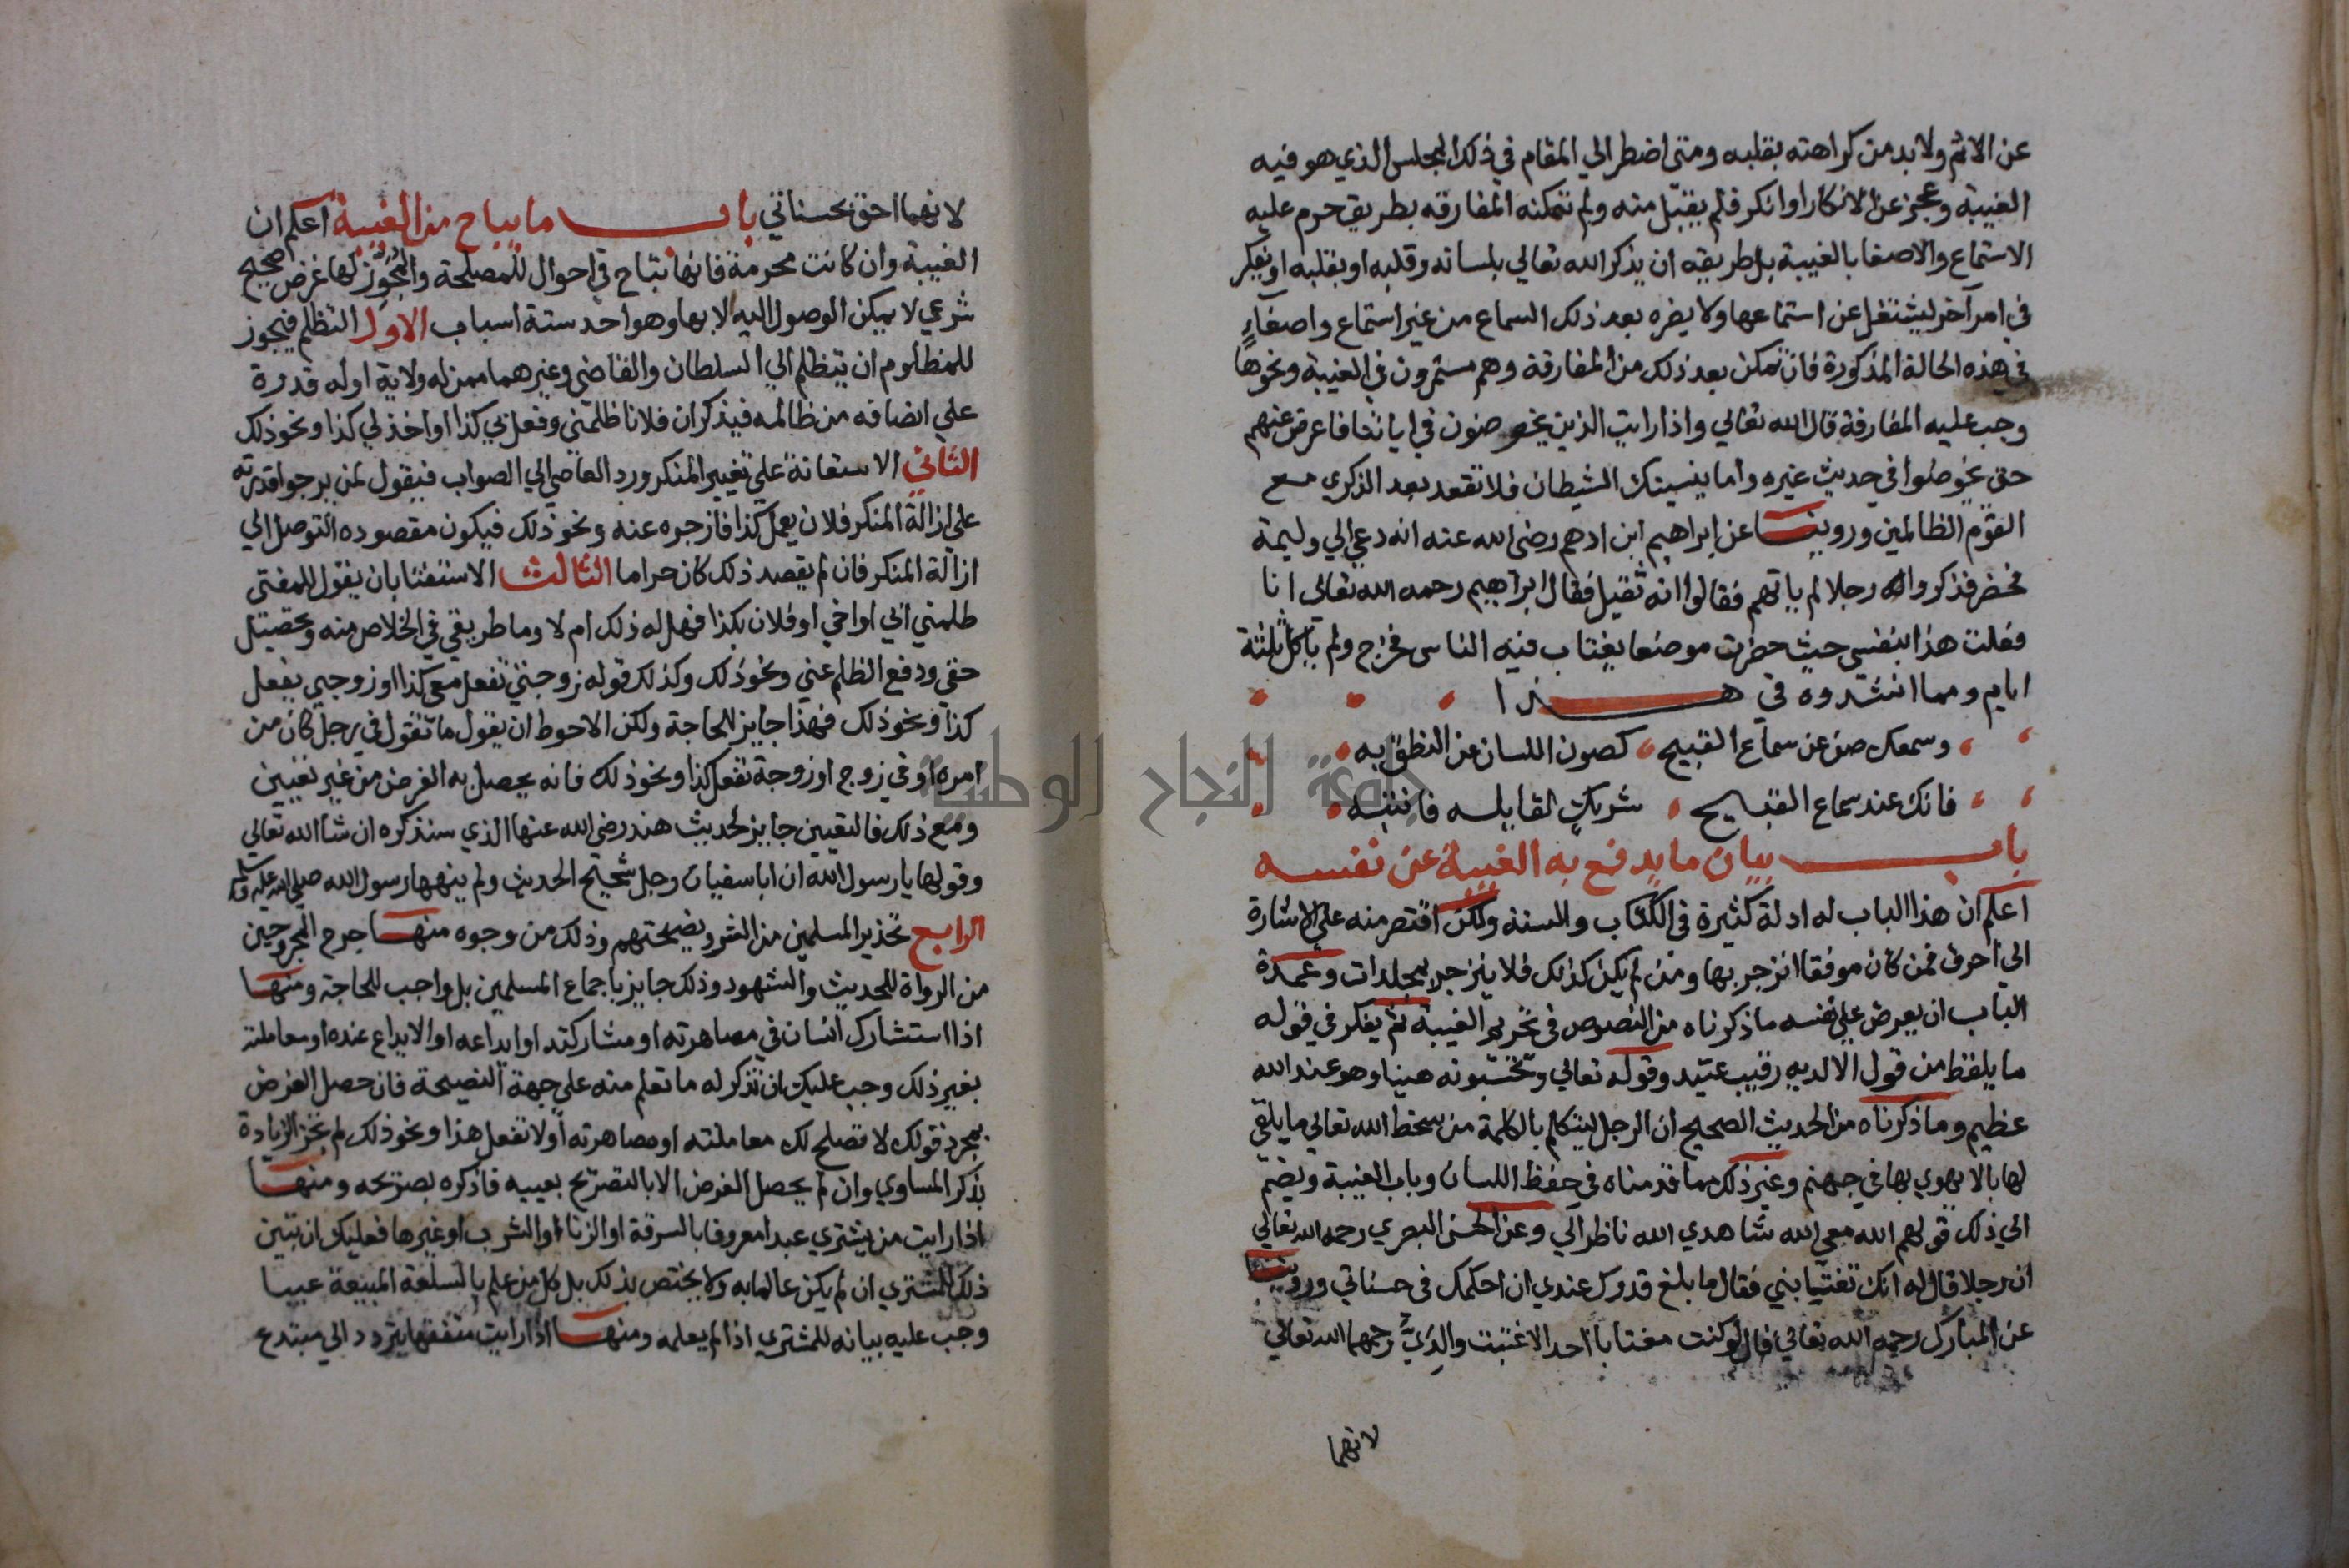 عن الاثم ولا بد من كراهته بقلبه ومتى اضطر الي المقام في ذلك المجلس الذي هو فيه
الغيبة وعجز عن الانكار او انكر فلم يقبل منه ولم تمكنه المفارقه بطريق حرم عليه
الاستماع والاصغا بالغيبة بل طريقه ان يذكر الله تعالي بلسانه وقلبه او بقلبه او يفكر
في امر آخر ليشتغل عن استماعها ولا يضره بعد ذلك السماع من غير استماع واصغاء
في هذه الحالة المذكورة فان تمكن بعد ذلك من المفارقة وهم مستمرون في الغيبة ونحوها
وجب عليه المفارقة قال الله تعالي واذا رايت الذين يخوضون في اياتنا فاعرض عنهم
حتى يخوضوا في حديث غيره واما ينسينك الشيطان فلا تقعد بعد الذكري مع
القوم الظالمين وروينا عن ابراهيم ابن ادهم رضي الله عنه انه دعي الي وليمة
فحضر فذكروا رجلا لم ياتهم فقالوا انه ثقيل فقال ابراهيم رحمه الله تعالى انا
فعلت هذا بنفسي حيث حضرت موضعا يغتاب فيه الناس فخرج ولم ياكل ثلثة
ايام ومما انشدوه في هذا
وسمعك صن عن سماع القبيح كصون اللسان عن النطق به
فانك عند سماع القبيح شريك لقايله فانتبه
باب بيان ما يدفع به الغيبة عن نفسه
اعلم ان هذا الباب له ادلة كثيرة في الكتاب والسنة ولكن اقتصر منه علي الاشارة
الي احرف فمن كان موفقا انزجر بها ومن لم يكن كذلك فلا ينزجر بمجلدات وعمدة
الباب ان يعرض علي نفسه ما ذكرناه من النصوص في تحريم الغيبة ثم يفكر في قوله
ما يلفظ من قول الا لديه رقيب عتيد وقوله تعالي وتحسبونه هينا وهو عند الله
عظيم وما ذكرناه من الحديث الصحيح ان الرجل ليتكلم بالكلمة من سخط الله تعالي ما يلقي
لها بالا يهوي بها في جهنم وغير ذلك مما قدمناه في حفظ اللسان وباب الغيبة ويضم
الي ذلك قولهم الله معي الله شاهدي الله ناظر الي وعن الحسن البصري رحمه الله تعالي
ان رجلا قال له انك تغتابني فقال ما بلغ قدرك عندي ان احكمك في حسناتي وروينا
عن المبارك رحمه الله تعالي قال لو كنت مغتابا احد الاغتبت والديَّ رحمهما الله تعالي
لانهما
لانهما احق بحسناتي باب ما يباح من الغيبة اعلم ان
الغيبة وان كانت محرمة فانها تباح في احوال للمصلحة والمجوز لها غرض صحيح
شرعي لا يمكن الوصول اليه الا بها وهو احد ستة اسباب الاول التظلم فيجوز
للمظلوم ان يتظلم الي السلطان والقاضي وغيرهما ممن له ولاية او له قدرة
علي انصافه من ظالمه فيذكر ان فلانا ظلمني وفعل بي كذا او اخذ لي كذا ونحو ذلك
الثاني الاستعانة علي تغيير المنكر ورد العاصي الي الصواب فيقول لمن يرجوا قدرته
علي ازالة المنكر فلان يعمل كذا فازجره عنه ونحو ذلك فيكون مقصوده التوصل الي
ازالة المنكر فان لم يقصد ذلك كان حراما الثالث الاستفتا بان يقول للمفتي
ظلمني ابي او اخي او فلان بكذا فهل له ذلك ام لا وما طريقي في الخلاص منه وتحصيل
حقي ودفع الظلم عني ونحو ذلك وكذلك قوله زوجتي تفعل معي كذا او زوجي يفعل
كذا ونحو ذلك فهذا جايز للحاجة ولكن الاحوط ان يقول ما تقول في رجل كان من
امره او في زوج او زوجة تفعل كذا ونحو ذلك فانه يحصل به الغرض من غير تعيين
ومع ذلك فالتعيين جايز لحديث هند رضي الله عنها الذي سنذكره ان شا الله تعالي
وقولها يا رسول الله ان ابا سفيان رجل شحيح الحديث ولم ينهها رسول الله صلي الله عليه وسلم
الرابع تحذير المسلمين من الشر ونصيحتهم وذلك من وجوه منها جرح المجروحين
من الرواة للحديث والشهود وذلك جايز باجماع المسلمين بل واجب للحاجة ومنها
اذا استشارك انسان في مصاهرته او مشاركته او ايداعه او الايداع عنده او معاملته
بغير ذلك وجب عليك ان تذكر له ما تعلم منه علي جهة النصيحة فان حصل الغرض
بمجرد قولك لا تصلح لك معاملته او مصاهرته او لا تفعل هذا ونحو ذلك لم تجز الزيادة
بذكر المساوي وان لم يحصل الغرض الا بالتصريح بعيبه فاذكره بصريحه ومنها
اذا رايت من يشتري عبدا معروفا بالسرقة او الزنا او الشرب او غيرها فعليك ان تبين
ذلك للمشتري ان لم يكن عالما به ولا يختص بذلك بل كل من علم بالسلعة المبيعة عيبا
وجب عليه بيانه للمشتري اذا لم يعلمه ومنها اذا رايت متفقها يتردد الي مبتدع
جامعة النجاح الوطنية